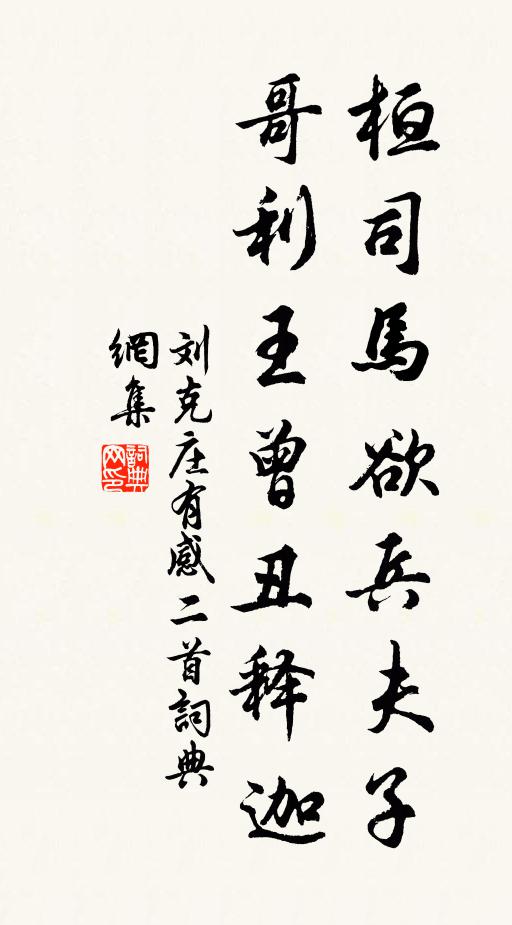 桓司馬欲兵夫子
哥利王曾丑释迦
刘克庄有感二首詞典
網集
詞典
网印